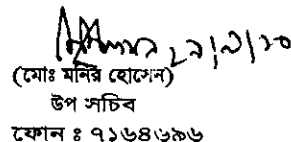 (মোঃ মনির হোসেন)
উপ সচিব
ফোন ঃ ৭১৬৪৬৯৬